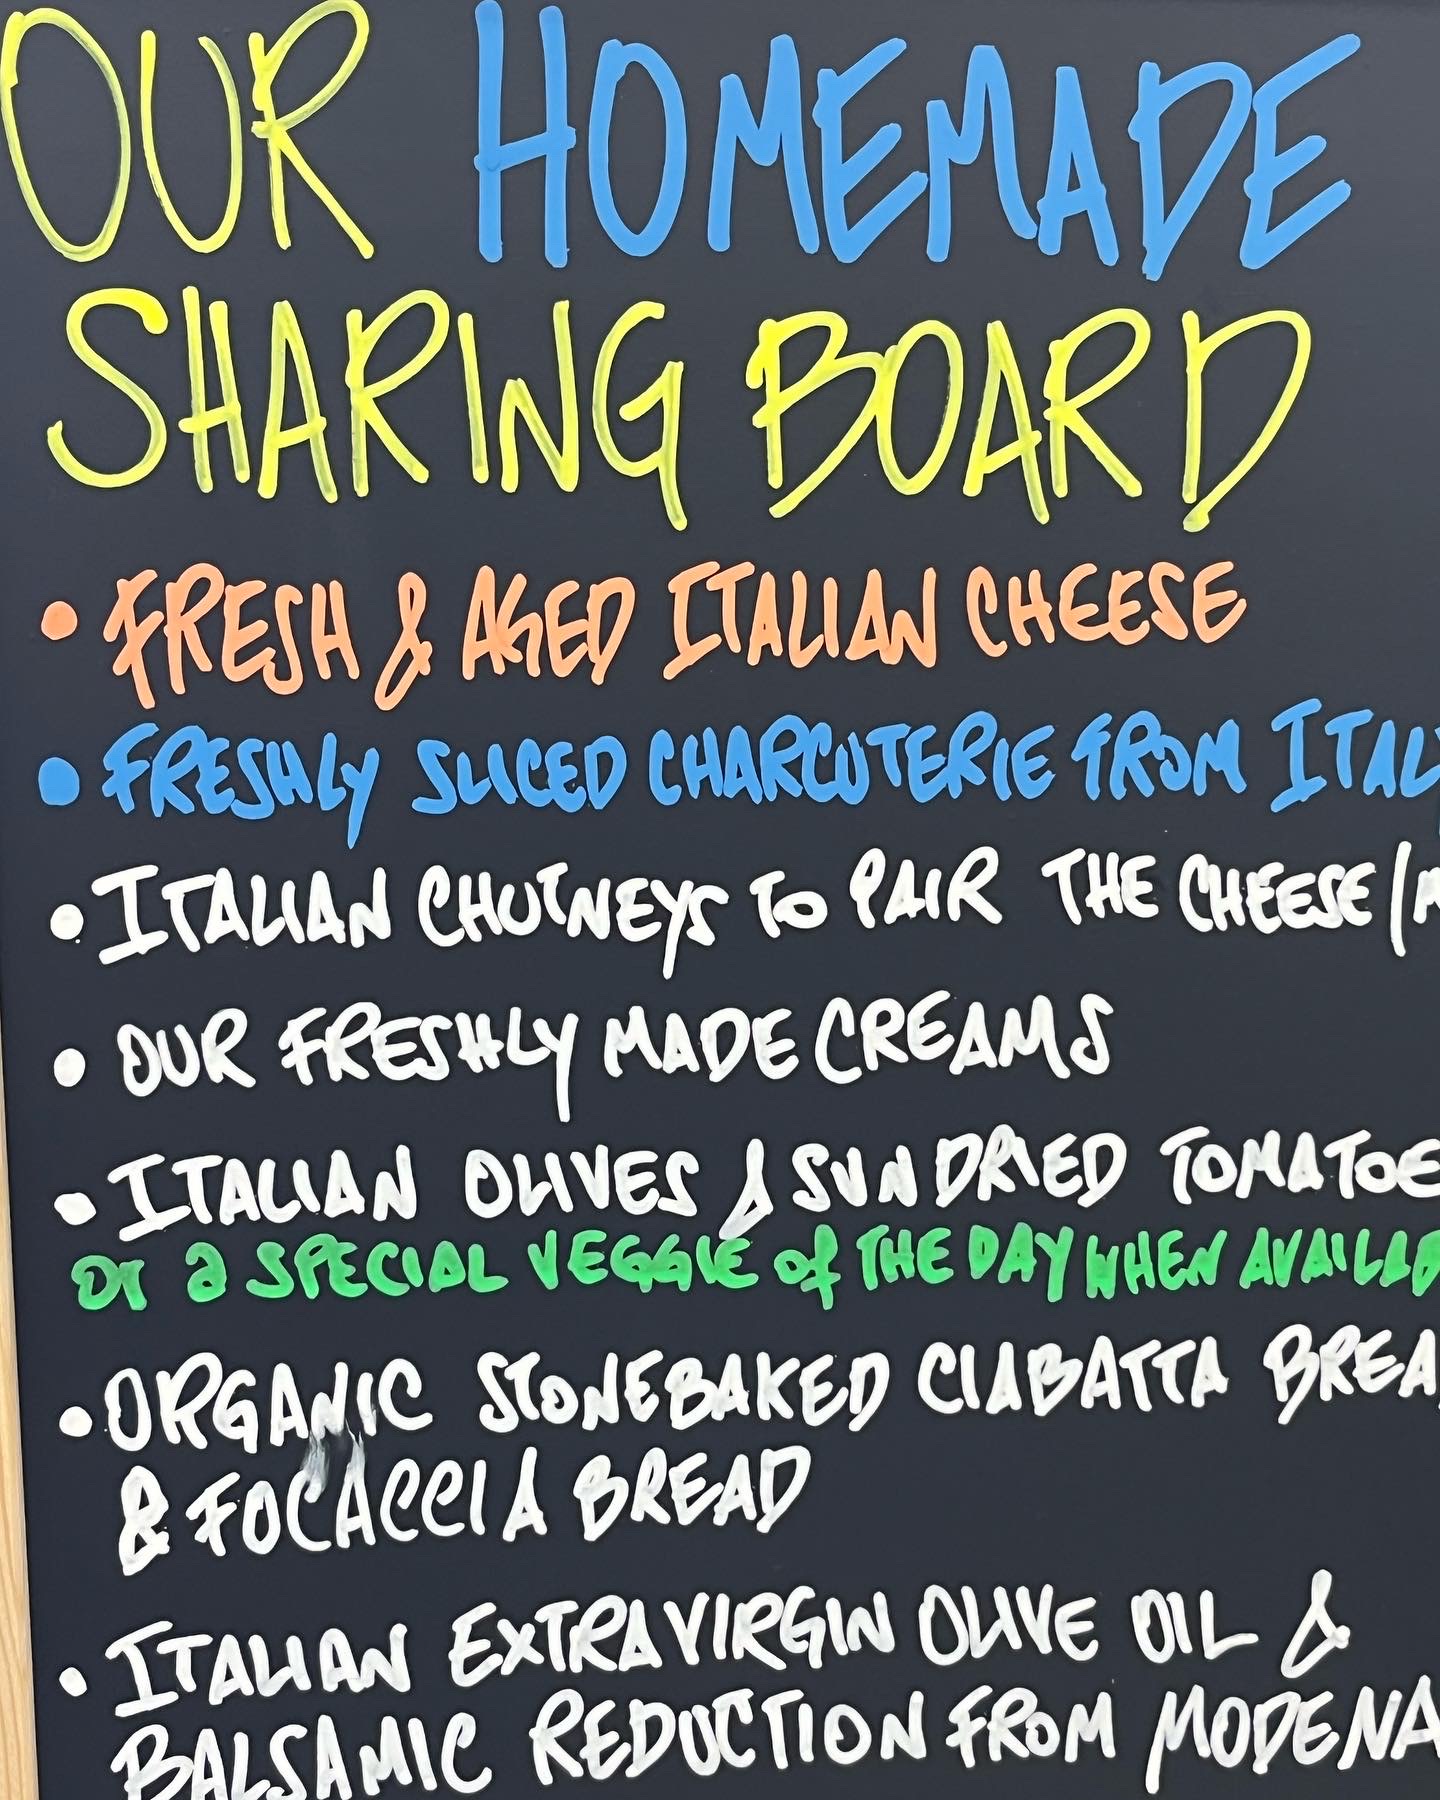 OUR HOMEMADE
SHARING BOARD
• FRESH & AGED ITALIAN CHEESE
• FRESHLY SLICED CHARCUTERIE FROM ITALY
• ITALIAN CHUTNEYS TO PAIR THE CHEESE/
• OUR FRESHLY MADE CREAMS
• ITALIAN OLIVES & SUNDRIED TOMATOE
or a SPECIAL VEGGIE of THE DAY WHEN AVAILAB
• ORGANIC STONEBAKED CIABATTA BREA
& FOCACCIA BREAD
• ITALIAN EXTRAVIRGIN OLIVE OIL &
BALSAMIC REDUCTION FROM MODENA